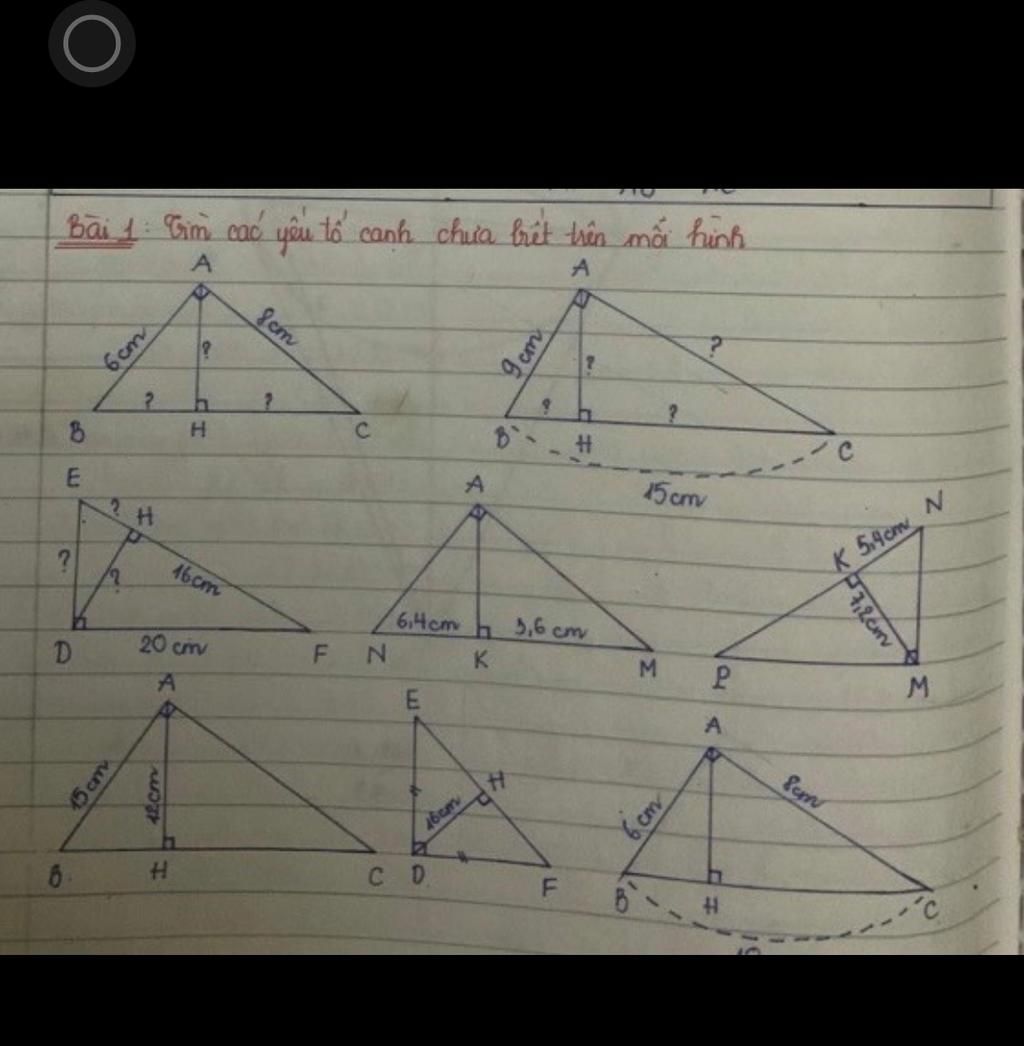 Bài 1: Tìm các yếu tố cạnh chưa biết trên mỗi hình
A
A
6cm
8cm
?
?
?
B
H
C
9cm
?
?
?
?
B
H
C
15cm
E
?
H
?
?
16cm
D
20cm
F
A
6,4cm
3,6cm
N
K
M
N
K
5,4cm
7,2cm
P
M
A
15cm
12cm
B
H
C
E
H
16cm
D
F
A
6cm
8cm
B
H
C